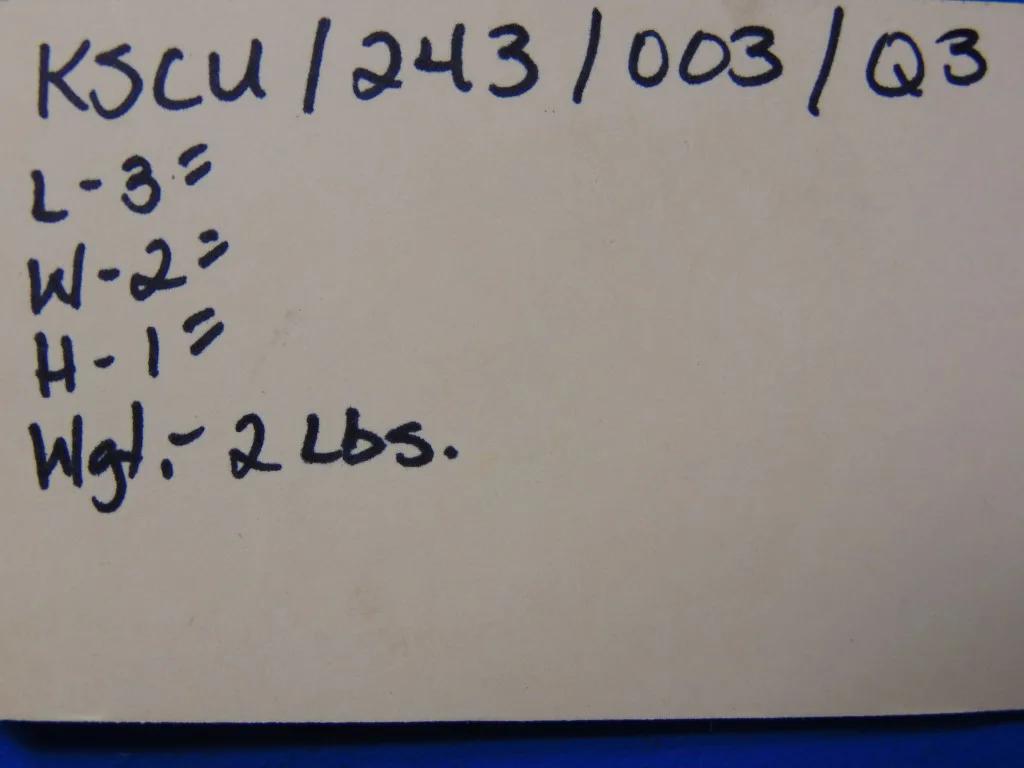 KSCU / 243 / 003 / Q3
L - 3"
W - 2"
H - 1"
Wgt. - 2 Lbs.